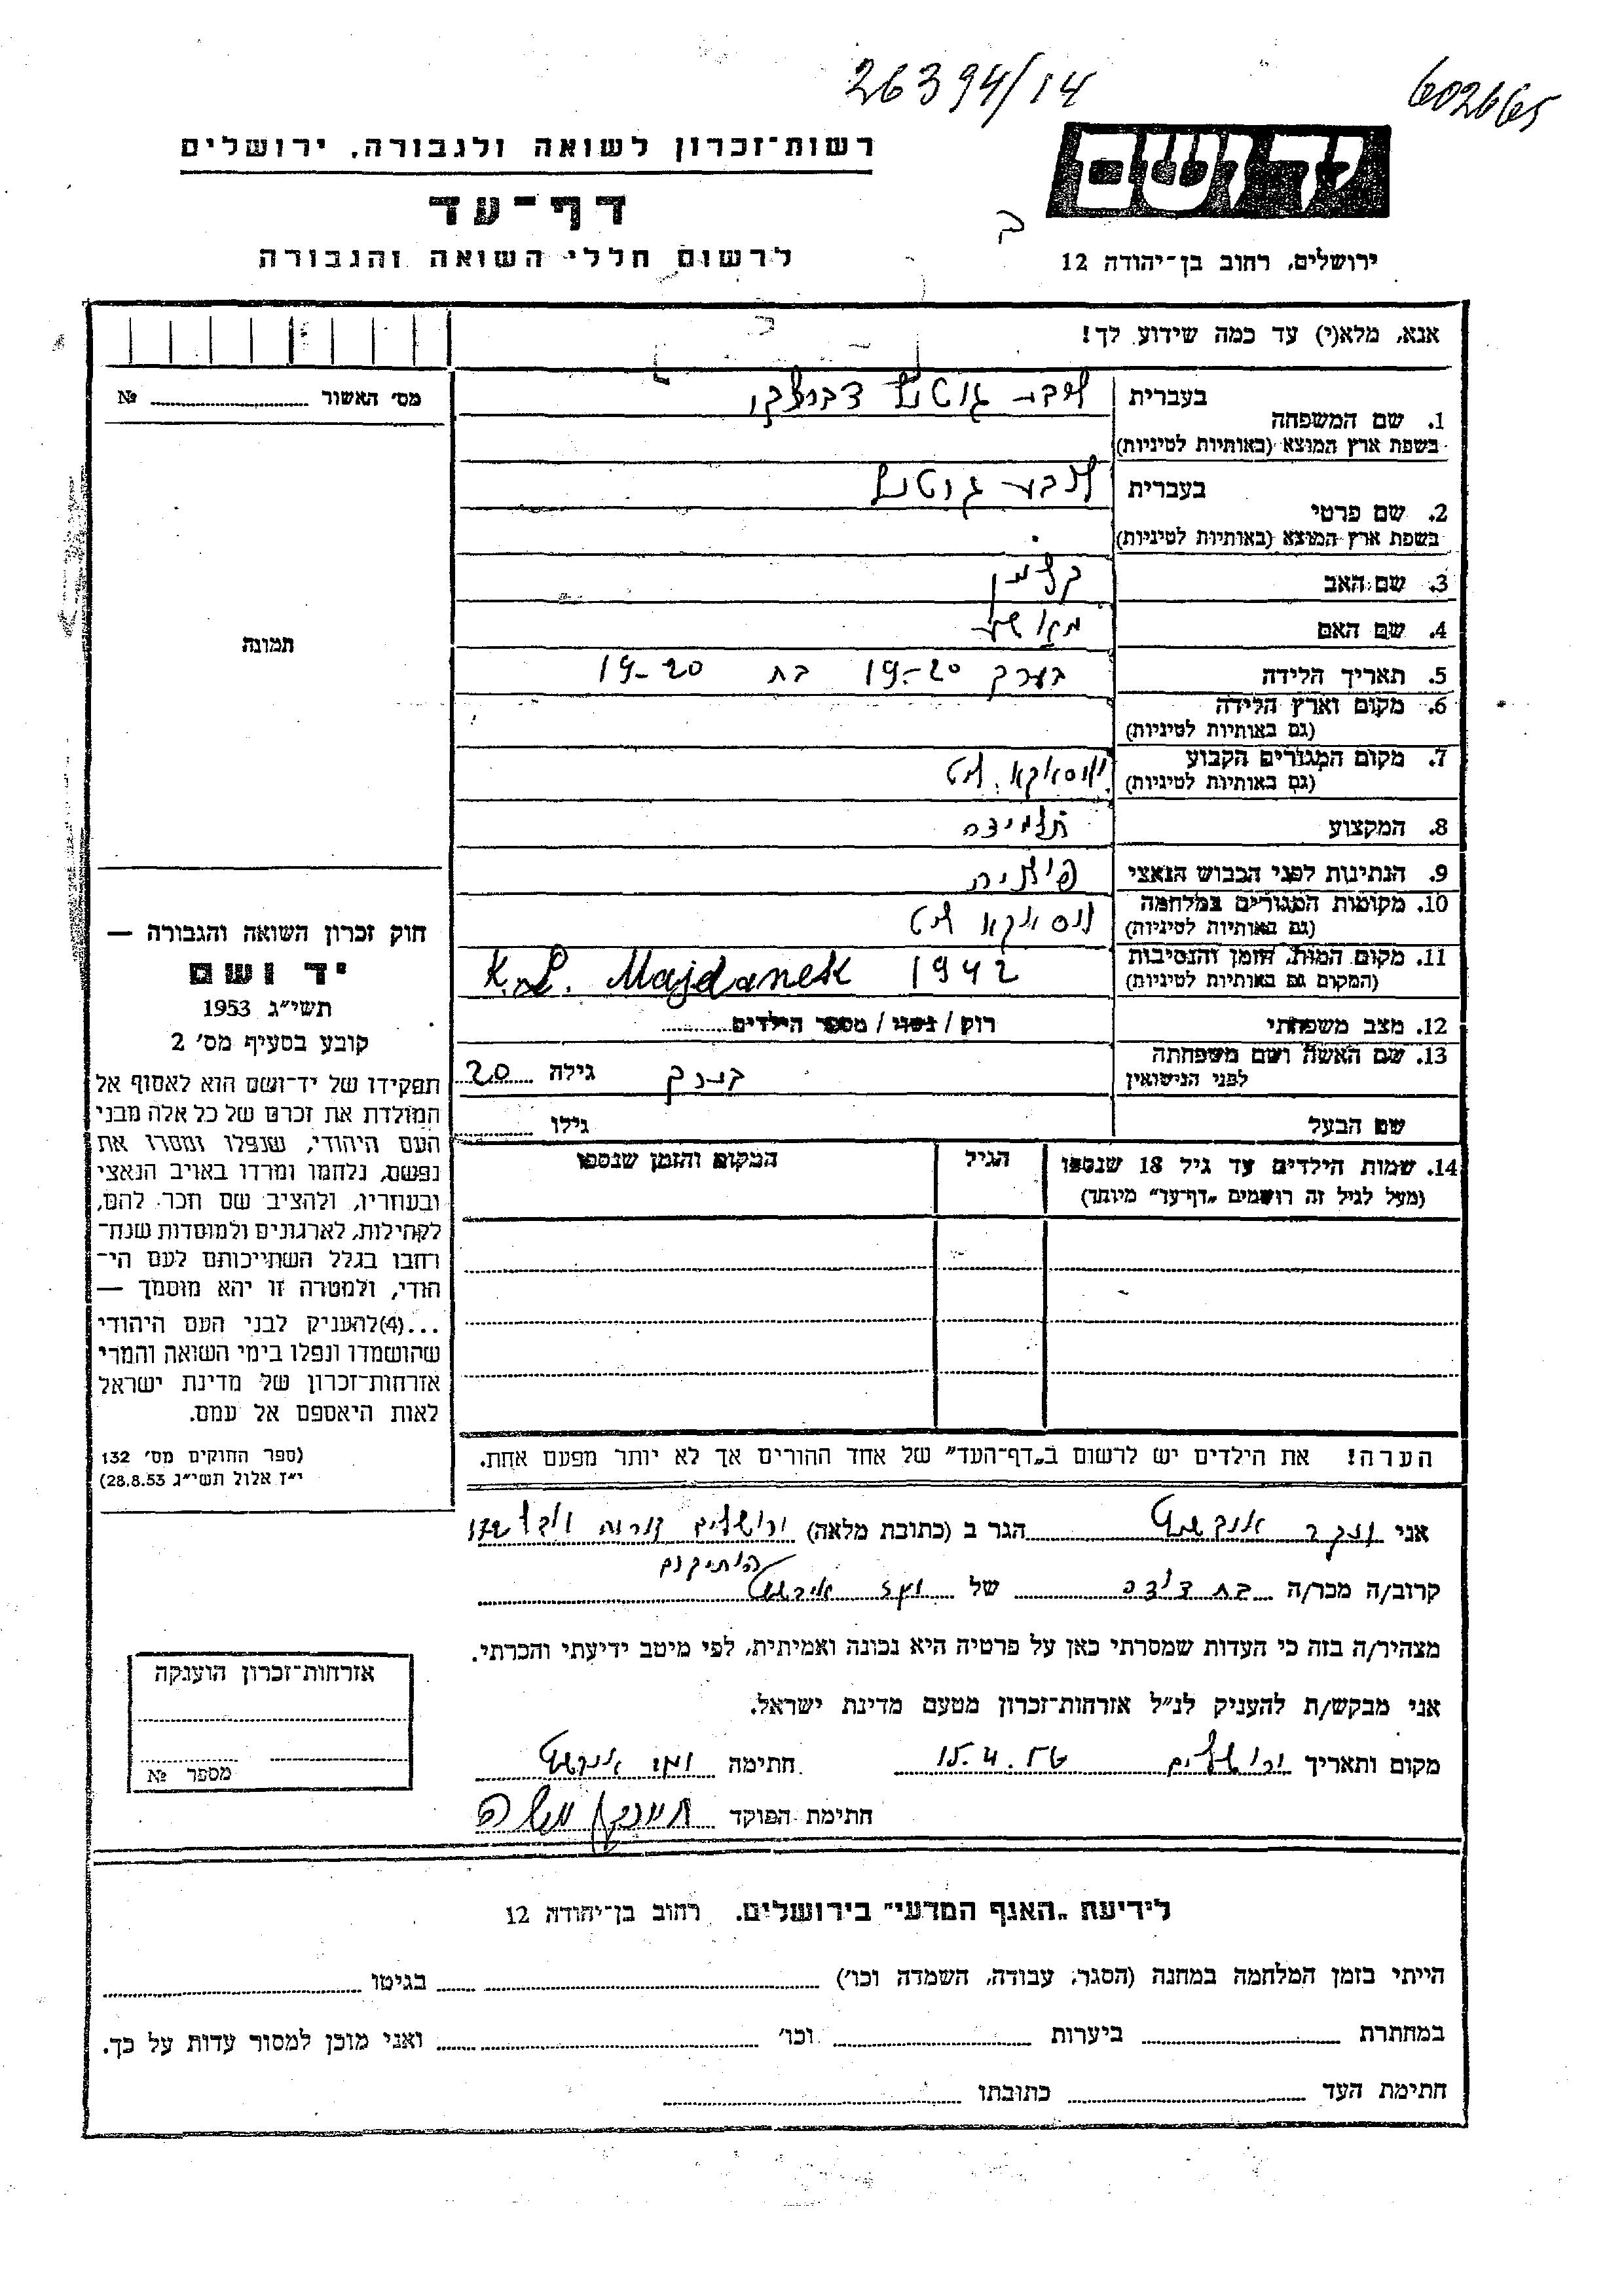 26394/14
602665
יד ושם
רשות־זכרון לשואה ולגבורה, ירושלים
דף־עד
לרשום חללי השואה והגבורה
ירושלים, רחוב בן־יהודה 12
אנא, מלא(י) עד כמה שידוע לך!
מס׳ האשור № 
1. שם המשפחה
בעברית
בשפת ארץ המוצא (באותיות לטיניות)
2. שם פרטי
בעברית
בשפת ארץ המוצא (באותיות לטיניות)
3. שם האב קלמן
4. שם האם
5. תאריך הלידה בערך 19-20 בת 19-20
6. מקום וארץ הלידה
(גם באותיות לטיניות)
7. מקום המגורים הקבוע
(גם באותיות לטיניות)
8. המקצוע תלמידה
9. הנתינות לפני הכבוש הנאצי פולניה
10. מקומות המגורים במלחמה
(גם באותיות לטיניות)
11. מקום המות, הזמן והנסיבות K.L. Majdanek 1942
(המקום גם באותיות לטיניות)
12. מצב משפחתי רוק / נשוי / מספר הילדים
13. שם האשה ושם משפחתה
לפני הנישואין
בערך גילה 20
שם הבעל גילו
14. שמות הילדים עד גיל 18 שנספו הגיל המקום והזמן שנספו
(מעל לגיל זה רושמים „דף־עד״ מיוחד)
הערה! את הילדים יש לרשום ב„דף־העד״ של אחד ההורים אך לא יותר מפעם אחת.
תמונה
חוק זכרון השואה והגבורה —
יד ושם
תשי״ג 1953
קובע בסעיף מס׳ 2
תפקידו של יד־ושם הוא לאסוף אל
המולדת את זכרם של כל אלה מבני
העם היהודי, שנפלו ומסרו את
נפשם, נלחמו ומרדו באויב הנאצי
ובעוזריו, ולהציב שם וזכר להם,
לקהילות, לארגונים ולמוסדות שנח־
רבו בגלל השתייכותם לעם הי־
הודי, ולמטרה זו יהא מוסמך —
...(4)להעניק לבני העם היהודי
שהושמדו ונפלו בימי השואה והמרי
אזרחות־זכרון של מדינת ישראל
לאות היאספם אל עמם.
(ספר החוקים מס׳ 132
י״ז אלול תשי״ג 28.8.53)
אני הגר ב (כתובת מלאה) ירושלים
קרוב/ה מכר/ה בת דודה של
מצהיר/ה בזה כי העדות שמסרתי כאן על פרטיה היא נכונה ואמיתית, לפי מיטב ידיעתי והכרתי.
אני מבקש/ת להעניק לנ״ל אזרחות־זכרון מטעם מדינת ישראל.
מקום ותאריך ירושלים 15.4.56 חתימה
חתימת הפוקד
אזרחות־זכרון הוענקה
מספר №
לידיעת „האגף המדעי״ בירושלים. רחוב בן־יהודה 12
הייתי בזמן המלחמה במחנה (הסגר, עבודה, השמדה וכו׳) בגיטו
במחתרת ביערות וכו׳ ואני מוכן למסור עדות על כך.
חתימת העד כתובתו